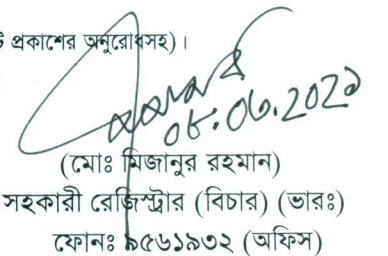 প্রকাশের অনুরোধসহ)।
(মোঃ মিজানুর রহমান)
সহকারী রেজিস্ট্রার (বিচার) (ভারঃ)
ফোনঃ ৯৫৬১৯৩২ (অফিস)